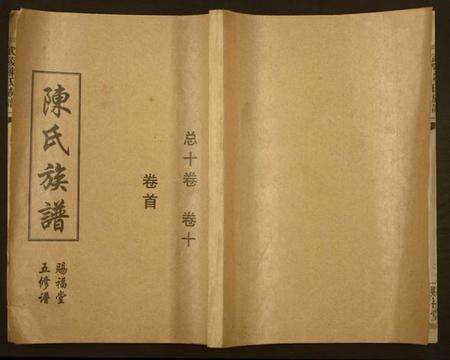 陳氏族譜
賜福堂
五修谱
卷首
总十卷 卷十